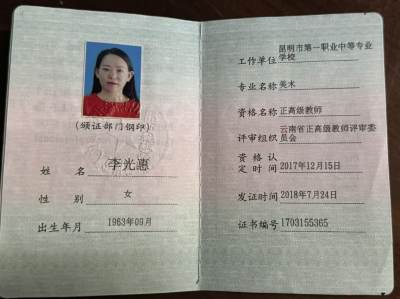 (颁证部门钢印)
姓 名 李光惠
性 别 女
出生年月 1963年09月
工作单位 昆明市第一职业中等专业
学校
专业名称 美术
资格名称 正高级教师
评审组织 云南省正高级教师评审委
员会
资格认
定时间 2017年12月15日
发证时间 2018年7月24日
证书编号 1703155365